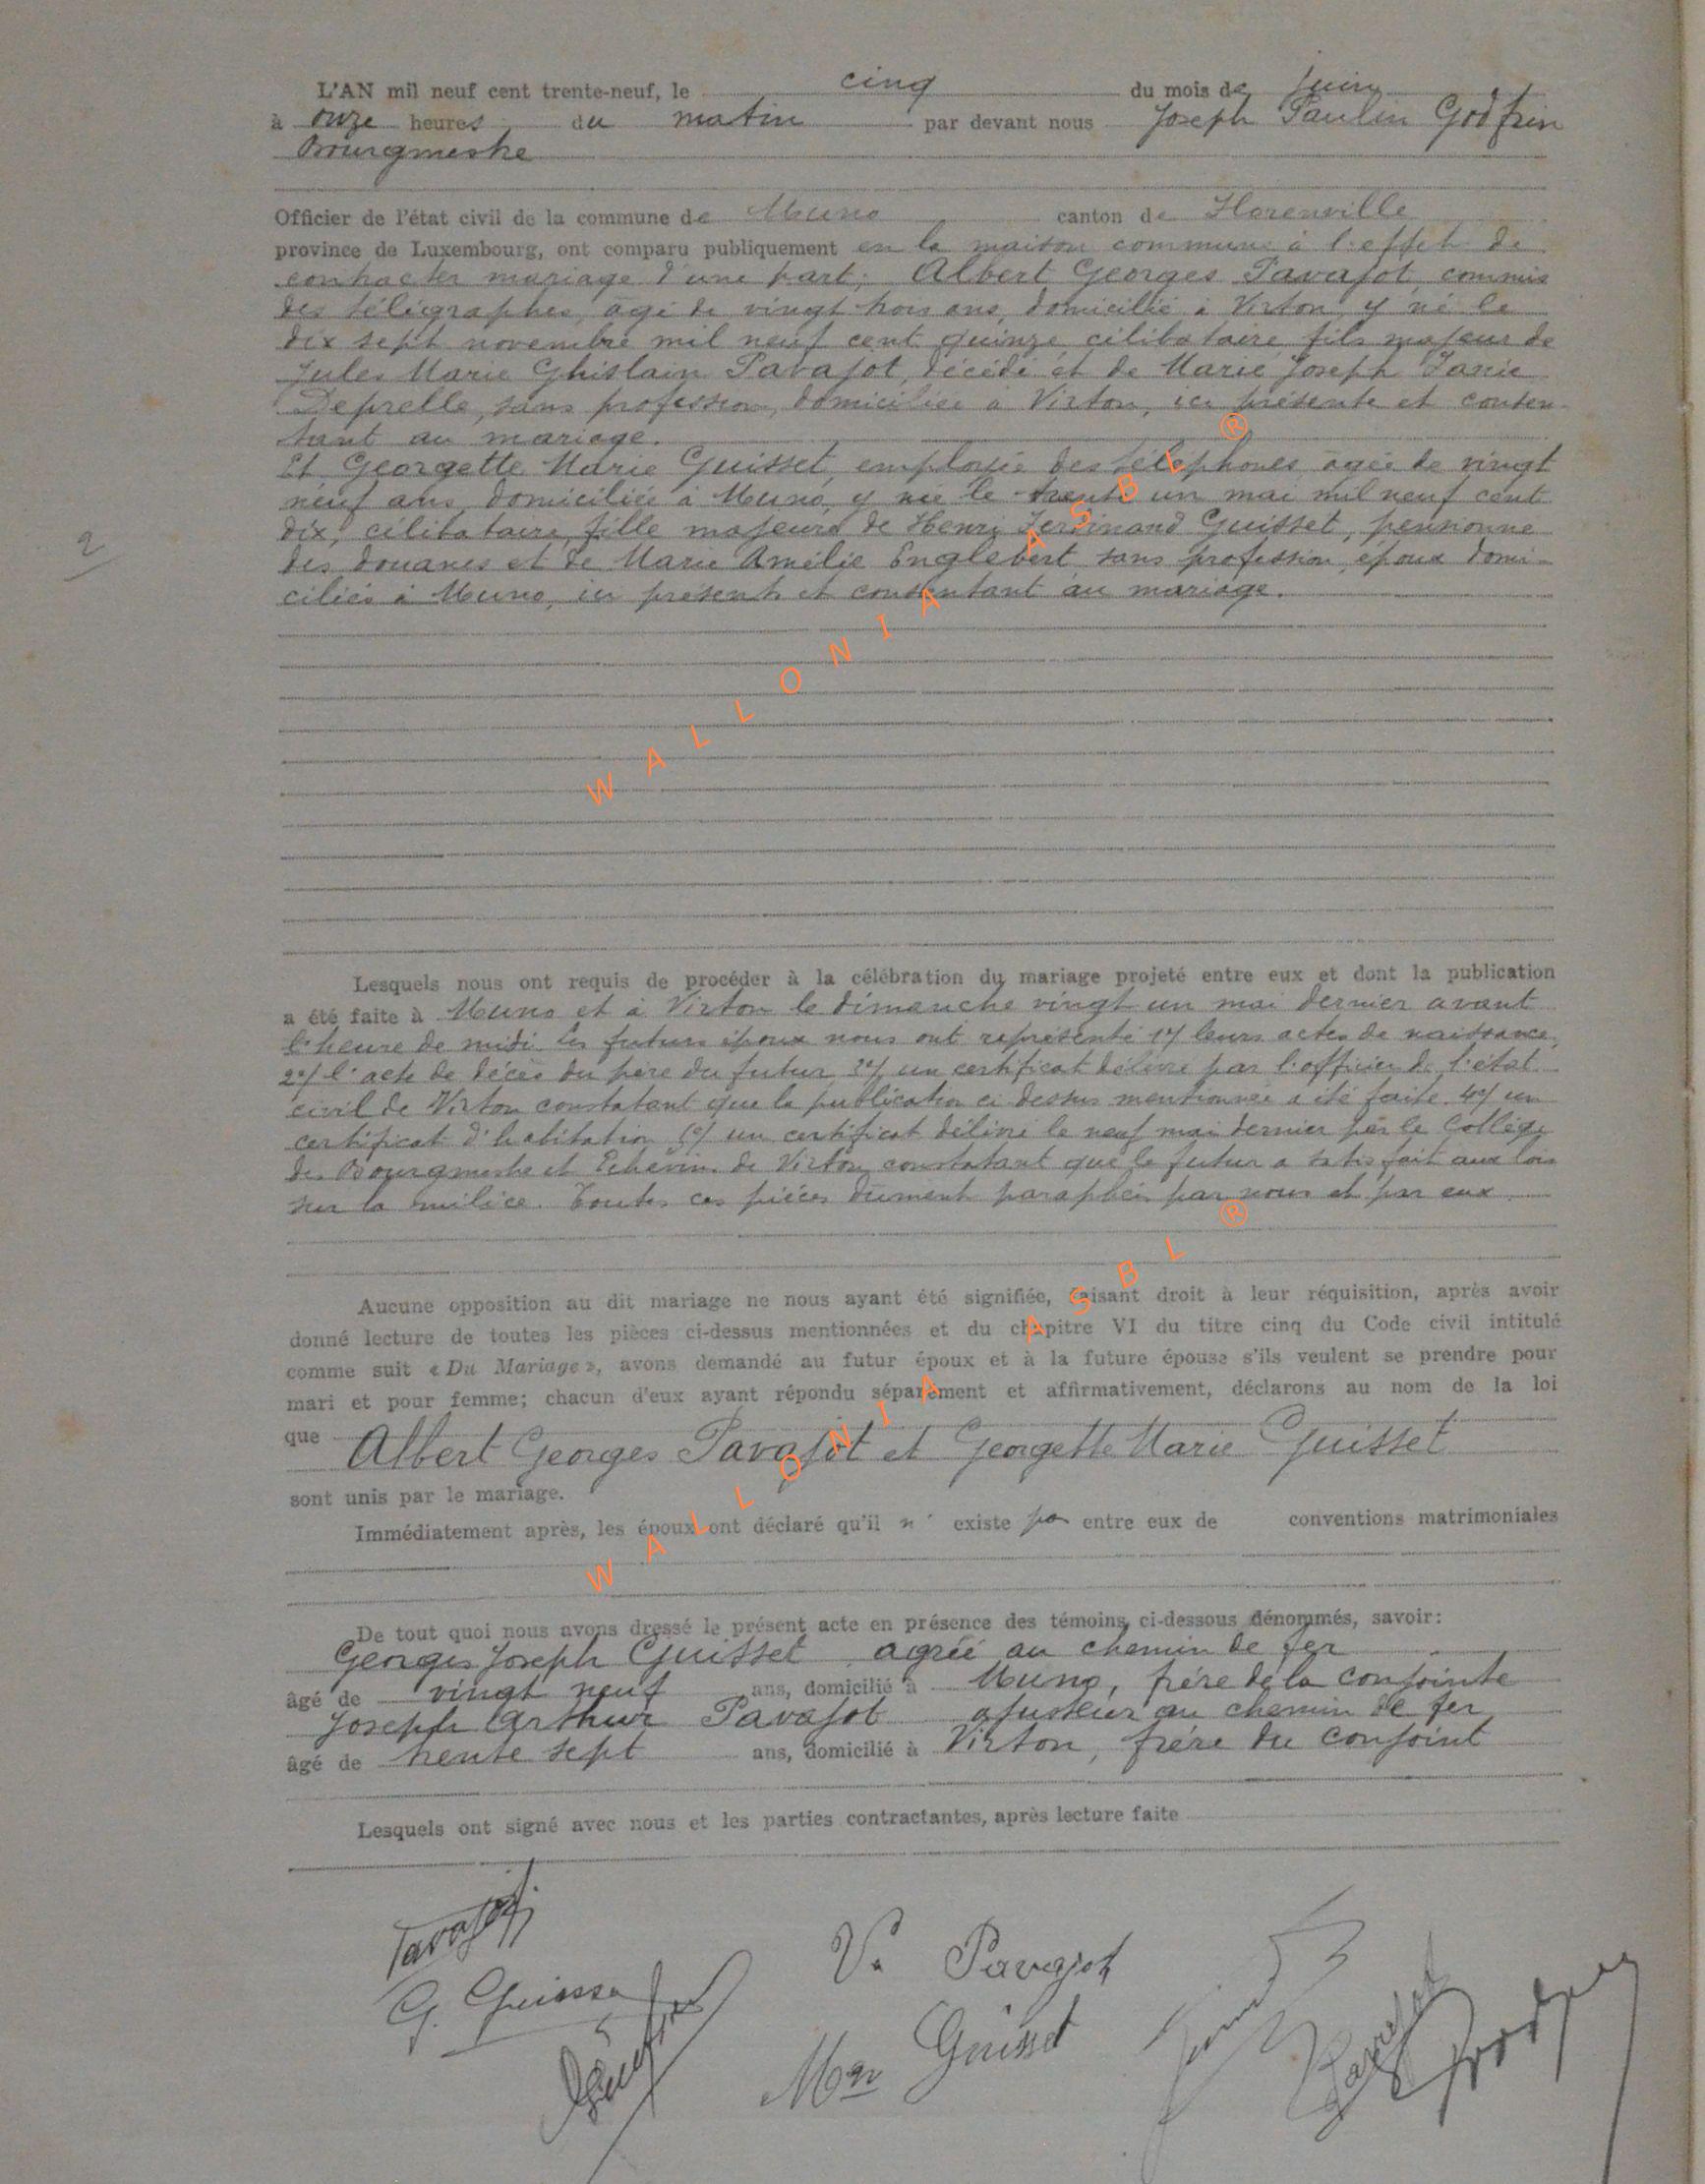 L'AN mil neuf cent trente-neuf, le cinq du mois de juin
à onze heures du matin par devant nous Joseph Paulin Godfrin
Bourgmestre
Officier de l'état civil de la commune de Muno canton de Florenville
province de Luxembourg, ont comparu publiquement en la maison commune à l'effet de
contracter mariage d'une part; Albert Georges Pavajot, commis
des télégraphes, âgé de vingt trois ans, domicilié à Virton, y né le
dix sept novembre mil neuf cent quinze, célibataire, fils majeur de
Jules Marie Ghislain Pavajot, décédé et de Marie Joseph
sans profession, domiciliée à Virton, ici présente et consen-
tant au mariage.
Et Georgette Marie Guisset, employée des téléphones âgée de vingt
neuf ans, domiciliée à Muno, y née le trente un mai mil neuf cent
dix, célibataire, fille majeure de Henri Ferdinand Guisset, pensionné
des douanes et de Marie Amélie Englebert sans profession, époux domi-
ciliés à Muno, ici présents et consentant au mariage.
2
Lesquels nous ont requis de procéder à la célébration du mariage projeté entre eux et dont la publication
a été faite à Muno et à Virton le dimanche vingt un mai dernier avant
l'heure de midi. les futurs époux nous ont représenté 1°/ leurs actes de naissance,
2°/ l'acte de décès du père du futur, 3°/ un certificat délivré par l'officier de l'état
civil de Virton constatant que la publication ci dessus mentionnée a été faite. 4°/ un
certificat d'habitation 5°/ un certificat délivré le neuf mai dernier par le Collège
des Bourgmestre et Echevins de Virton, constatant que le futur a satisfait aux lois
sur la milice. Toutes ces pièces dûment paraphées par nous et par eux
Aucune opposition au dit mariage ne nous ayant été signifiée, faisant droit à leur réquisition, après avoir
donné lecture de toutes les pièces ci-dessus mentionnées et du chapitre VI du titre cinq du Code civil intitulé
comme suit « Du Mariage », avons demandé au futur époux et à la future épouse s'ils veulent se prendre pour
mari et pour femme; chacun d'eux ayant répondu séparément et affirmativement, déclarons au nom de la loi
que Albert Georges Pavajot et Georgette Marie Guisset
sont unis par le mariage.
Immédiatement après, les époux ont déclaré qu'il n' existe pas entre eux de conventions matrimoniales
De tout quoi nous avons dressé le présent acte en présence des témoins, ci-dessous dénommés, savoir:
Georges Joseph Guisset agréé au chemin de fer
âgé de vingt neuf ans, domicilié à Muno, frère de la conjointe
Joseph Arthur Pavajot ajusteur au chemin de fer
âgé de trente sept ans, domicilié à Virton, frère du conjoint
Lesquels ont signé avec nous et les parties contractantes, après lecture faite
Pavajot
G. Guisset
Ve Pavajot
Guisset
WALLONIA ASBL ®
WALLONIA ASBL ®